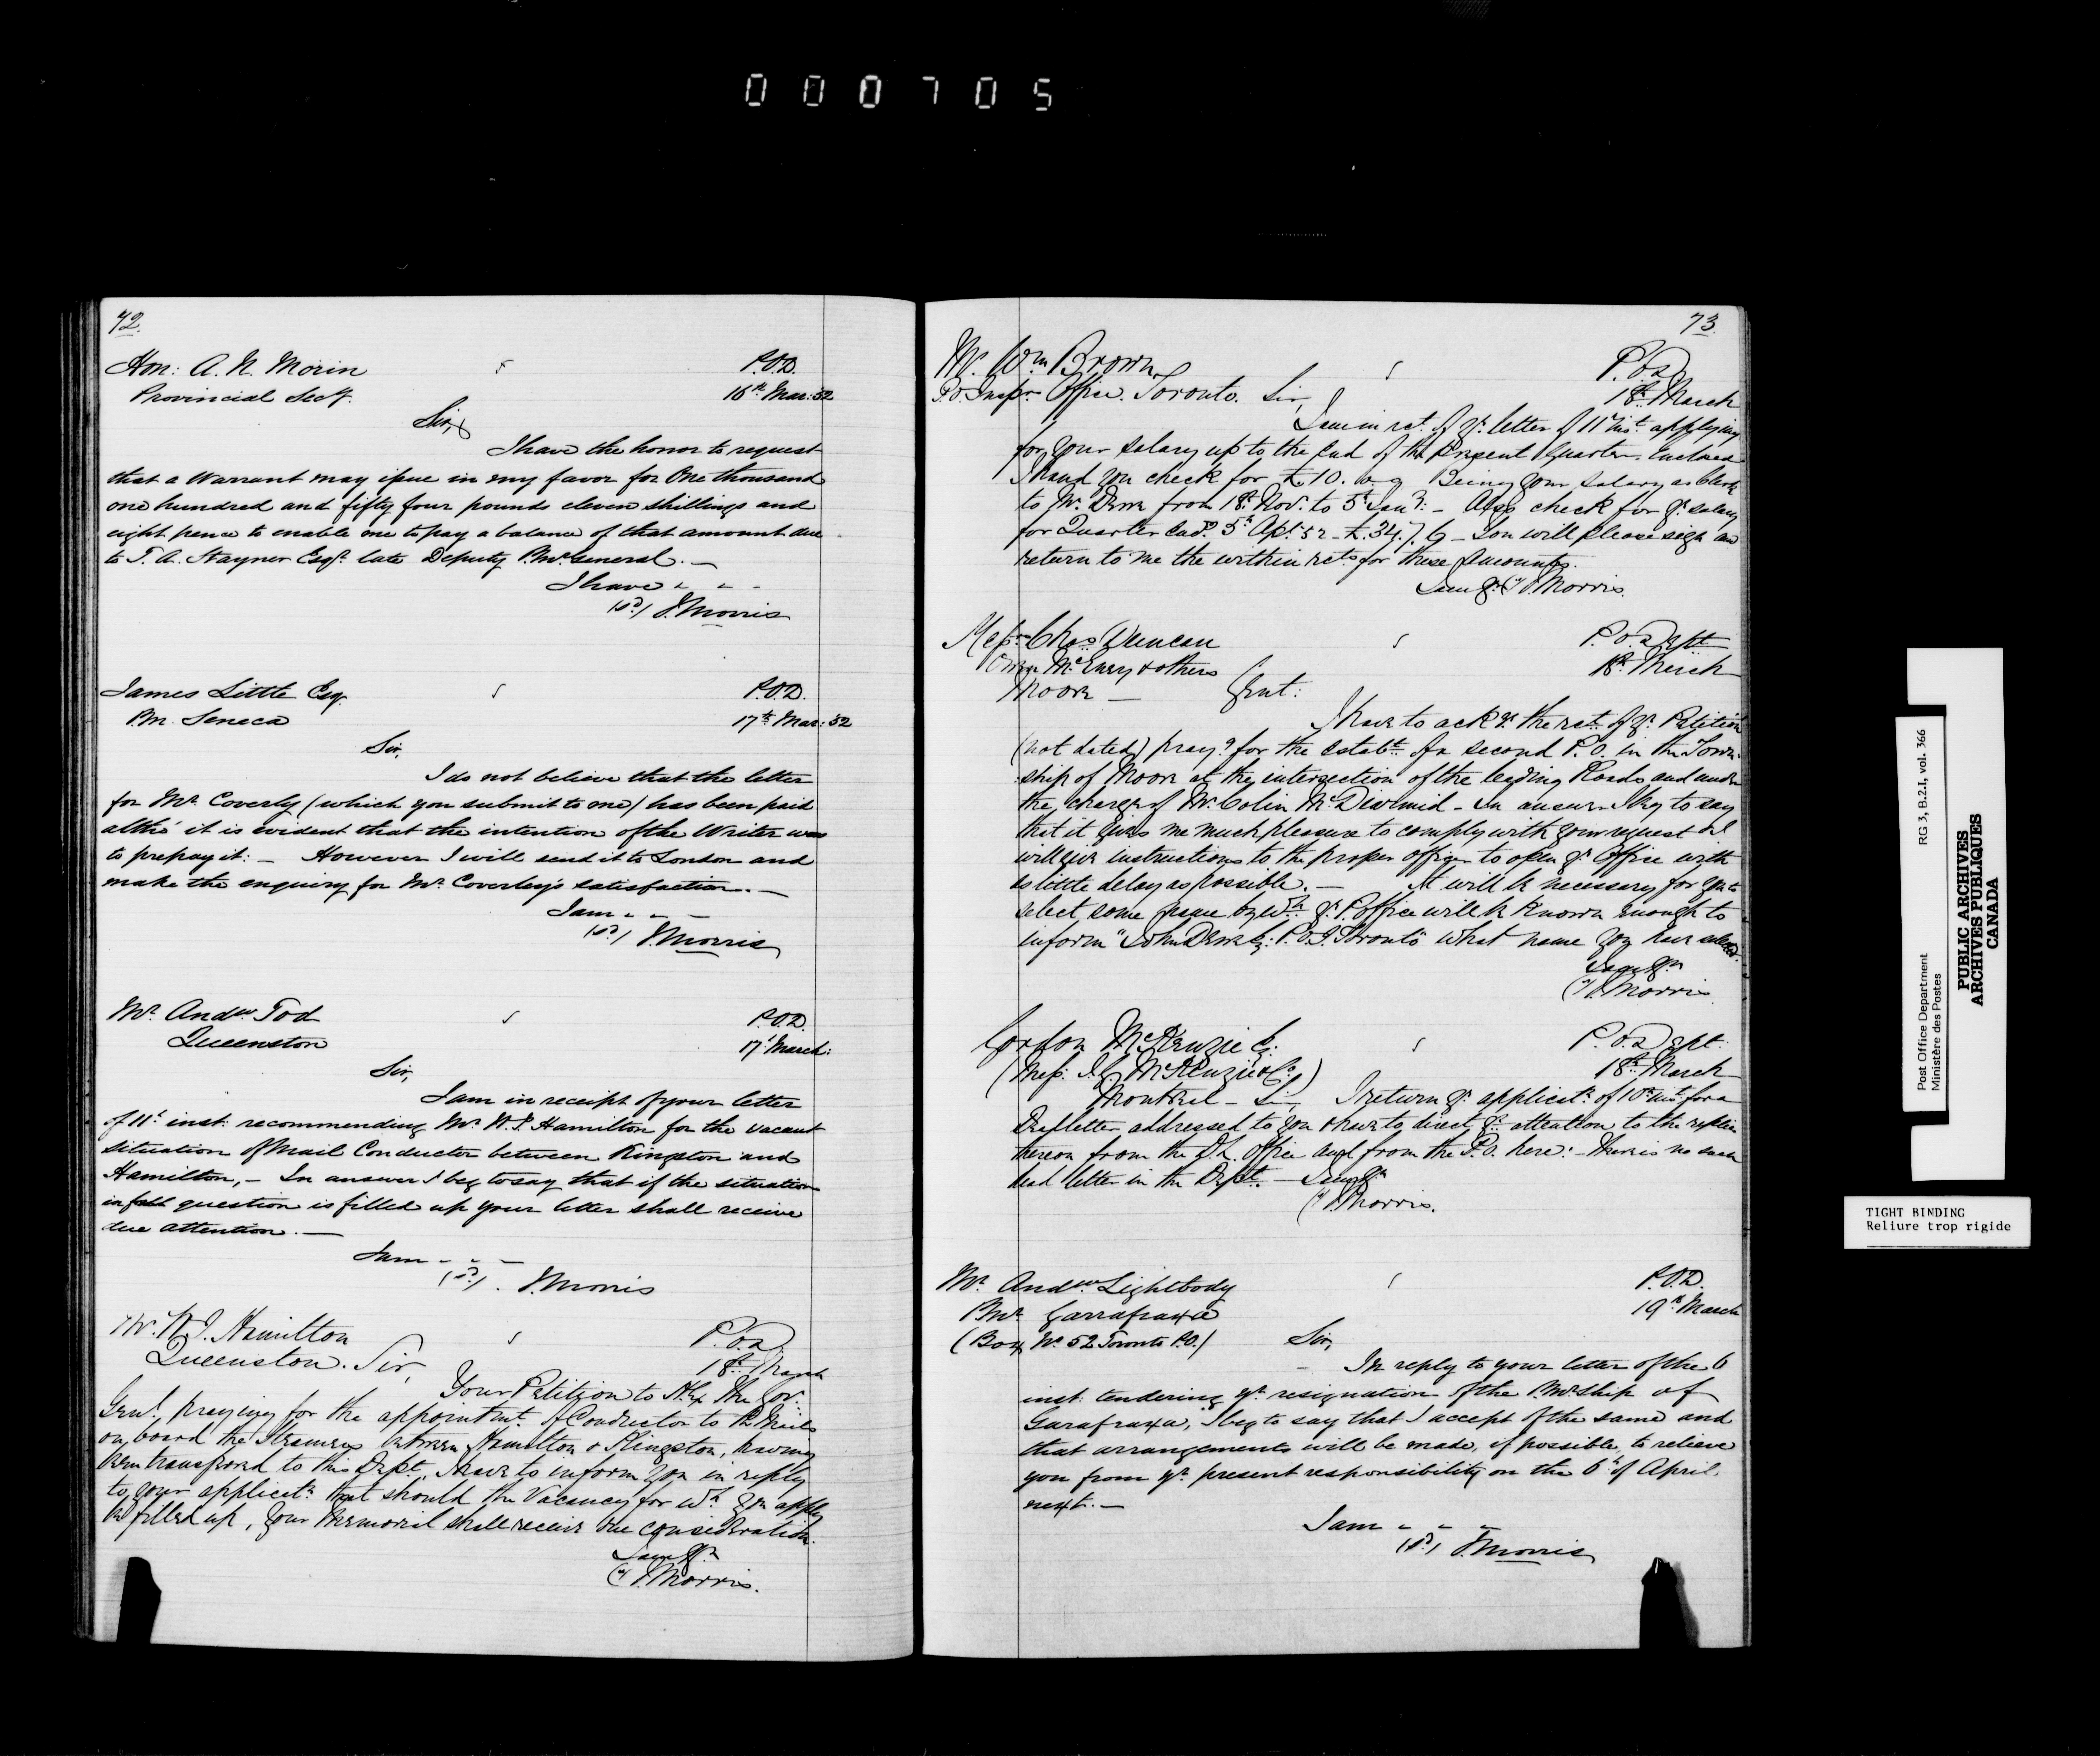 000705
72.
Hon: A. N. Morin P.O.D.
Provincial Secy. 16th Mar: 52
Sir,
I have the honor to request
that a Warrant may issue in my favor for One thousand
one hundred and fifty four pounds eleven shillings and
eight pence to enable me to pay a balance of that amount due
to T. A. Stayner Esqr. late Deputy P.Mr General. —
I have " " "
(sd) J. Morris
James Little Esq. P.O.D.
P.M. Seneca 17th Mar: 52
Sir,
I do not believe that the letter
for Mr. Coverly (which you submit to me) has been paid
altho' it is evident that the intention of the Writer was
to prepay it: — However I will send it to London and
make the enquiry for Mr. Coverley's satisfaction. —
I am " " —
(sd) J. Morris
Mr. Andw Tod P.O.D.
Queenston 17' March:
Sir,
I am in receipt of your letter
of 11t inst: recommending Mr. W. J. Hamilton for the vacant
situation of Mail Conductor between Kingston and
Hamilton, — In answer I beg to say that if the situation
in question is filled up your letter shall receive
due attention. —
I am " " —
(sd). J. Morris
Mr. W. J. Hamilton P.O.D.
Queenston. Sir, 18th March
Your Petition to H. Ex the Gov.
Genl. praying for the appointmt. of Conductor to the Mails
on board the Steamers between Hamilton & Kingston, having
been transferred to this Dept., I have to inform you in reply
to your applicatn. that should the Vacancy for wh. you apply
be filled up, your Memorial shall receive due consideration.
I am Yr.
(sd) J. Morris.
73.
Mr. Wm Brown P.O.D
P.O. Inspr. Office. Toronto. Sir, 18th March
I am in rct. of yr. letter of 11th inst. applying
for your salary up to the End of the Present Quarter. Enclosed
I hand you check for £10. Being your Salary as Clerk
to Mr. Dewe from 18th Nov. to 5th Jany: — Also check for yr. salary
for Quarter End. 5th Apl. 52 — £34. 7. 6 — You will please sign and
return to me the within rcts for these Amounts.
I am yr. (sd) J. Morris.
Messrs Chas Duncan P.O. Dept
McEvery & others 18th March
Moore — Gent:
I have to ackge. the rct. of yr. Petition
(not dated) prayg. for the establt. of a second P.O. in the Town-
ship of Moore at the intersection of the leading Roads and under
the charge of Mr. Colin McDiarmid — In answer I beg to say
that it gives me much pleasure to comply with your request & I
will give instructions to the proper officer to open yr. Office with
as little delay as possible. — It will be necessary for you to
select some name by wh. yr. P. office will be known enough to
inform "John Dewe Esq: P.O.I. Toronto" what name you have selected.
I am Yr.
(sd) J. Morris
Gordon McKenzie Esq: P.O. Dept.
(Messrs: J. G. McKenzie & Co.) 18th March
Montreal — Sir, I return yr. applicatn. of 10th inst. for a
letter addressed to you & have to direct yr. attention to the replies
thereon from the D.L. Office and from the P.O. here: — There is no such
dead letter in the Dept. — I am Yr.
(sd) J. Morris.
Mr. Andw Lightbody P.O.D.
P.Mr. Garrafraxa 19th March
(Box No. 52 Toronto P.O.) Sir,
In reply to your letter of the 6
inst: tendering yr. resignation of the P.Mr.ship of
Garafraxa, I beg to say that I accept of the same and
that arrangements will be made, if possible, to relieve
you from yr. present responsibility on the 6th of April.
next. —
I am " " "
(sd) J. Morris
Post Office Department RG 3, B.2.I, vol. 366
Ministère des Postes
PUBLIC ARCHIVES
ARCHIVES PUBLIQUES
CANADA
TIGHT BINDING
Reliure trop rigide